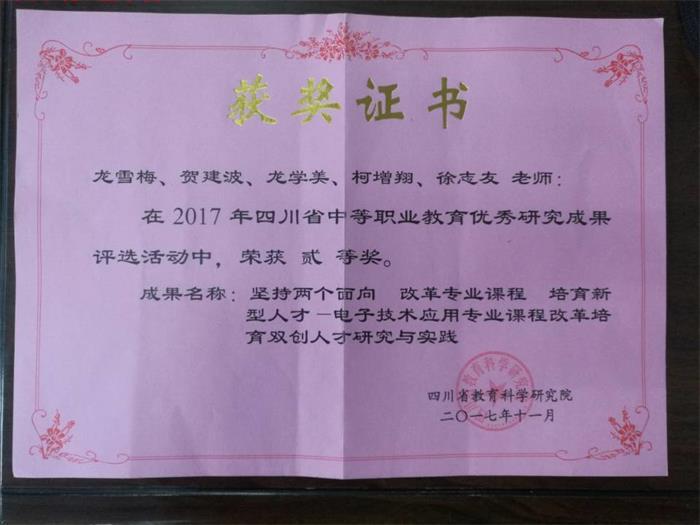 获奖证书
龙雪梅、贺建波、龙学美、柯增翔、徐志友 老师：
在 2017 年四川省中等职业教育优秀研究成果
评选活动中，荣获 贰 等奖。
成果名称：坚持两个面向 改革专业课程 培育新
型人才－电子技术应用专业课程改革培
育双创人才研究与实践
四川省教育科学研究院
二〇一七年十一月